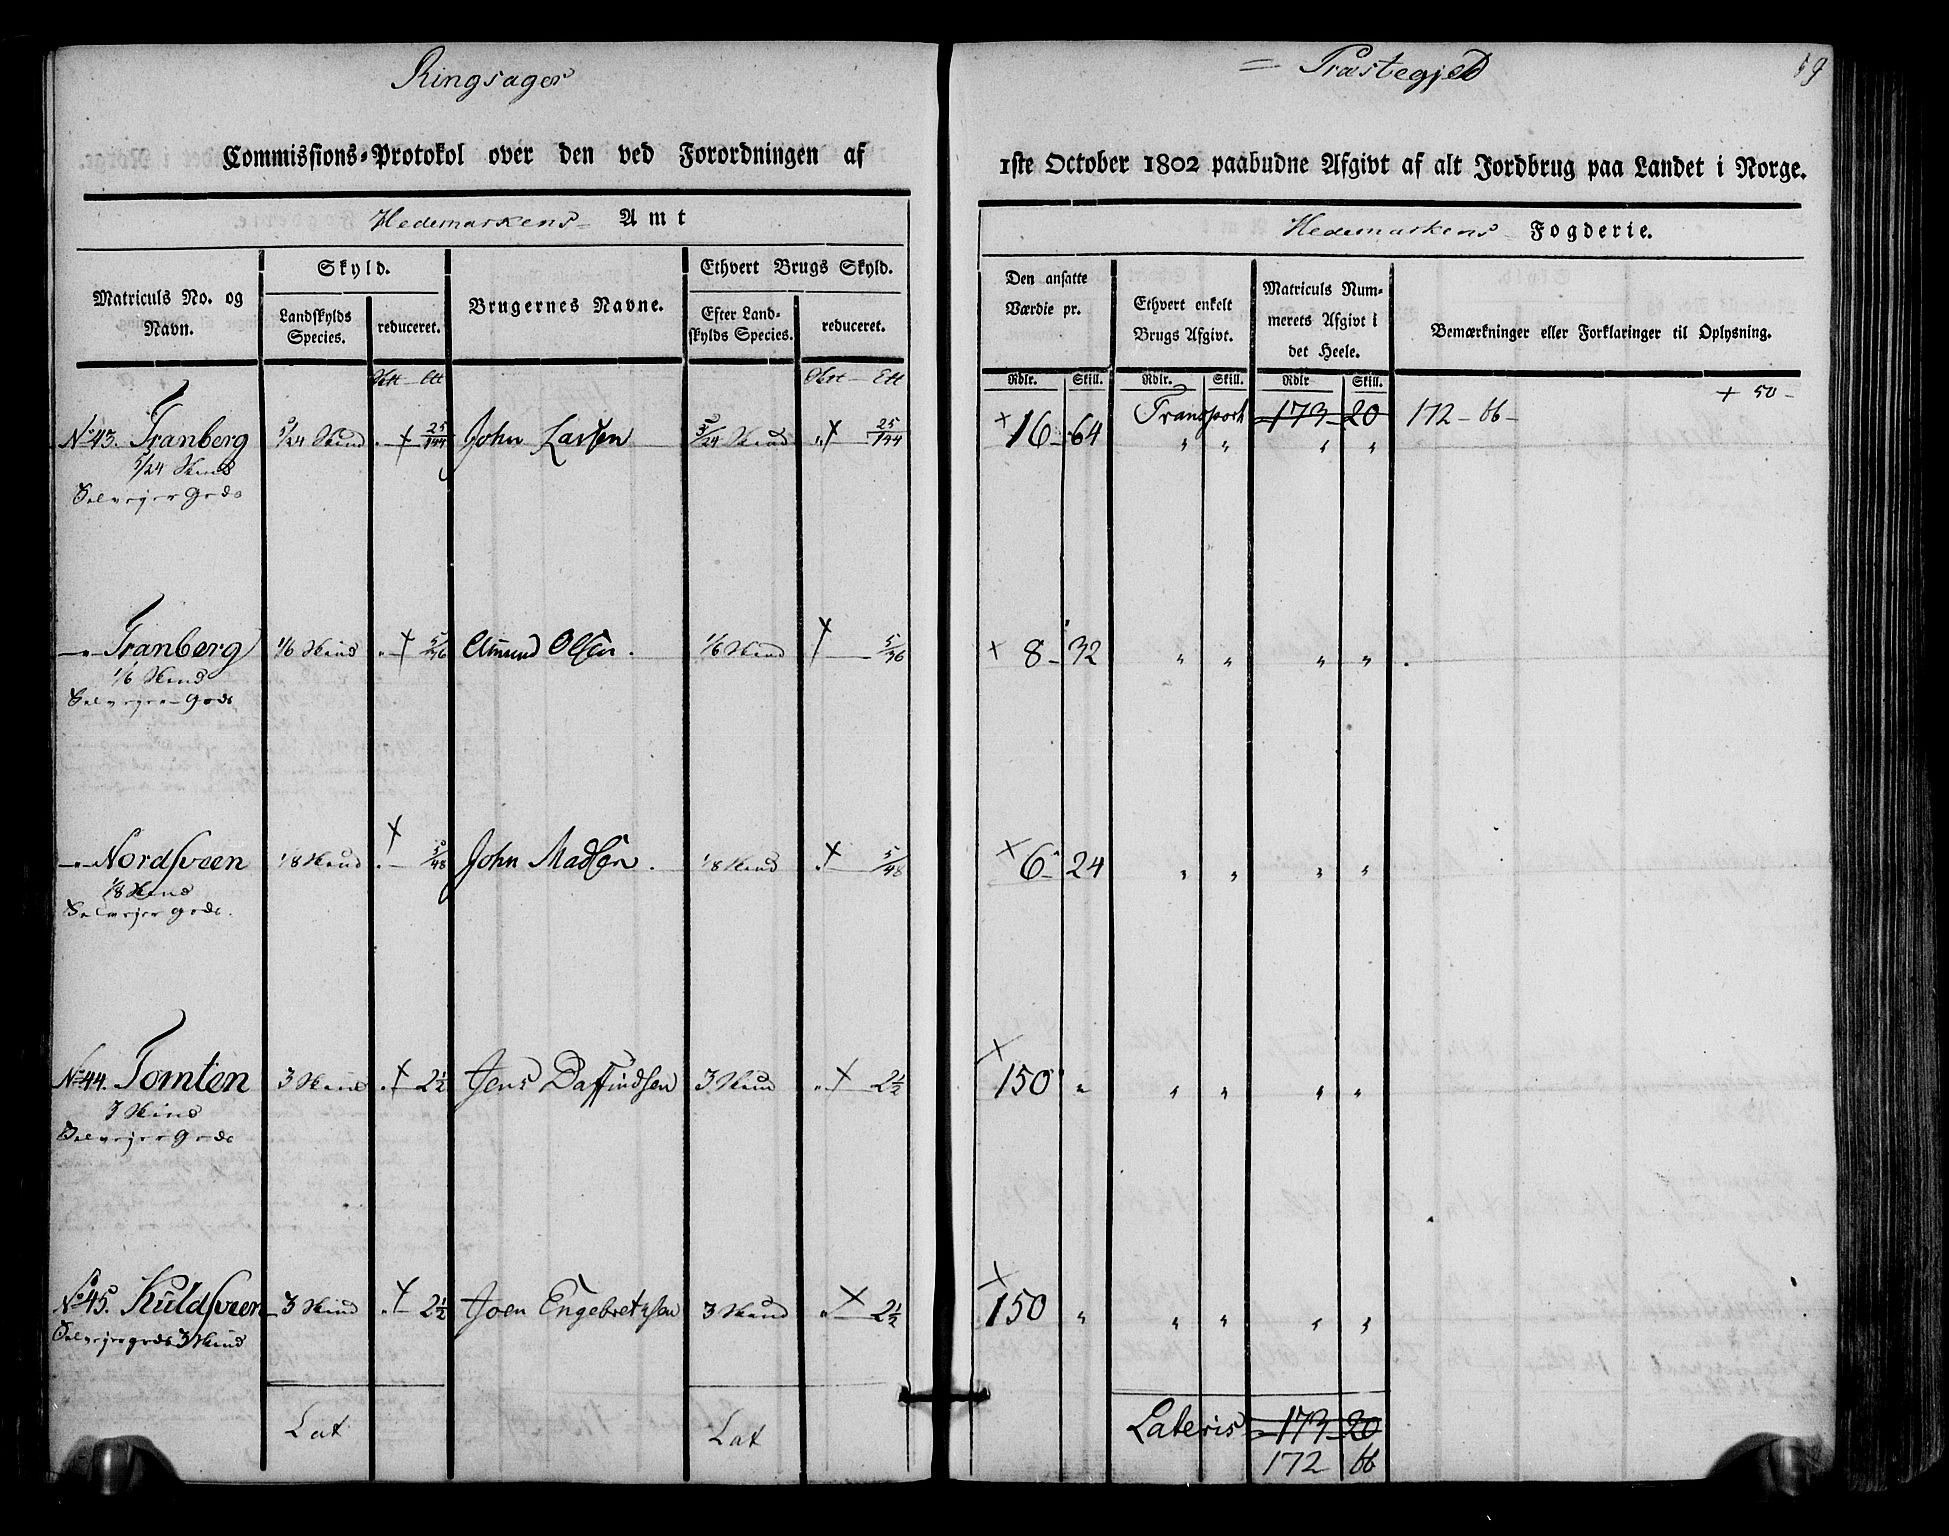 Ringsager = Præstegjeld 59
Commissions-Protokol over den ved Forordningen af 1ste October 1802 paabudne Afgivt af alt Jordbrug paa Landet i Norge.
Hedemarkens Amt Hedemarkens Fogderie.
Matriculs No. og Navn.
Skyld.
Landskylds Species.
reduceret.
Brugernes Navne.
Ethvert Brugs Skyld.
Efter Landskylds Species.
reduceret.
Den ansatte Værdie pr.
Ethvert enkelt Brugs Afgivt.
Matriculs Nummerets Afgivt i det Heele.
Bemærkninger eller Forklaringer til Oplysning.
Rdlr. Skill. Rdlr. Skill. Rdlr Skill.
Transport 173 20 172 - 66 - + 50 -
No 43. Tranberg 5/24 Hud + 25/144 John Larsen 5/24 Hud + 25/144 + 16 - 64 " " " "
5/24 Hud
Selvejer Gods
" Tranberg 1/6 Hud + 5/36 Amund Olsen. 1/6 Hud + 5/36 + 8 - 32 " " " "
1/6 Hud
Selvejer Gods
" Nordsveen 1/8 Hud + 5/48 John Madsen. 1/8 Hud + 5/48 + 6 - 24 " " " "
1/8 Hud
Selvejer Gods.
No 44. Tomten 3 Hud + 2 1/2 Jens Daffindsen 3 Hud + 2 1/2 + 150 " " " " "
3 Hud
Selvejer Gods
No 45. Kuldsveen 3 Hud + 2 1/2 Joen Engebretsen 3 Hud + 2 1/2 + 150 " " " " "
Selvejergods 3 Hud
Lat Lat Lateris 173 20
172 66